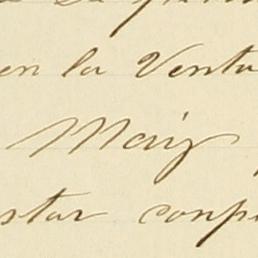 en la Ventu
Maiz
star conp